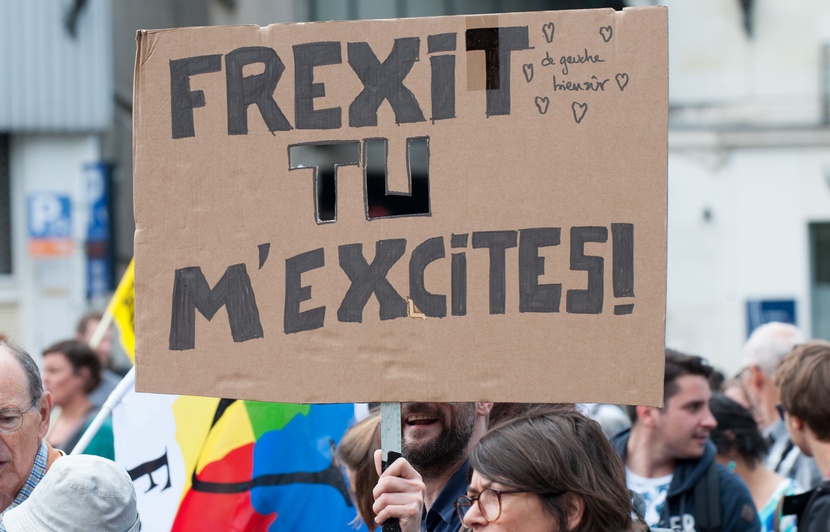 FREXiT
de gauche
bien sûr
TU
M'EXCiTES!
P
F